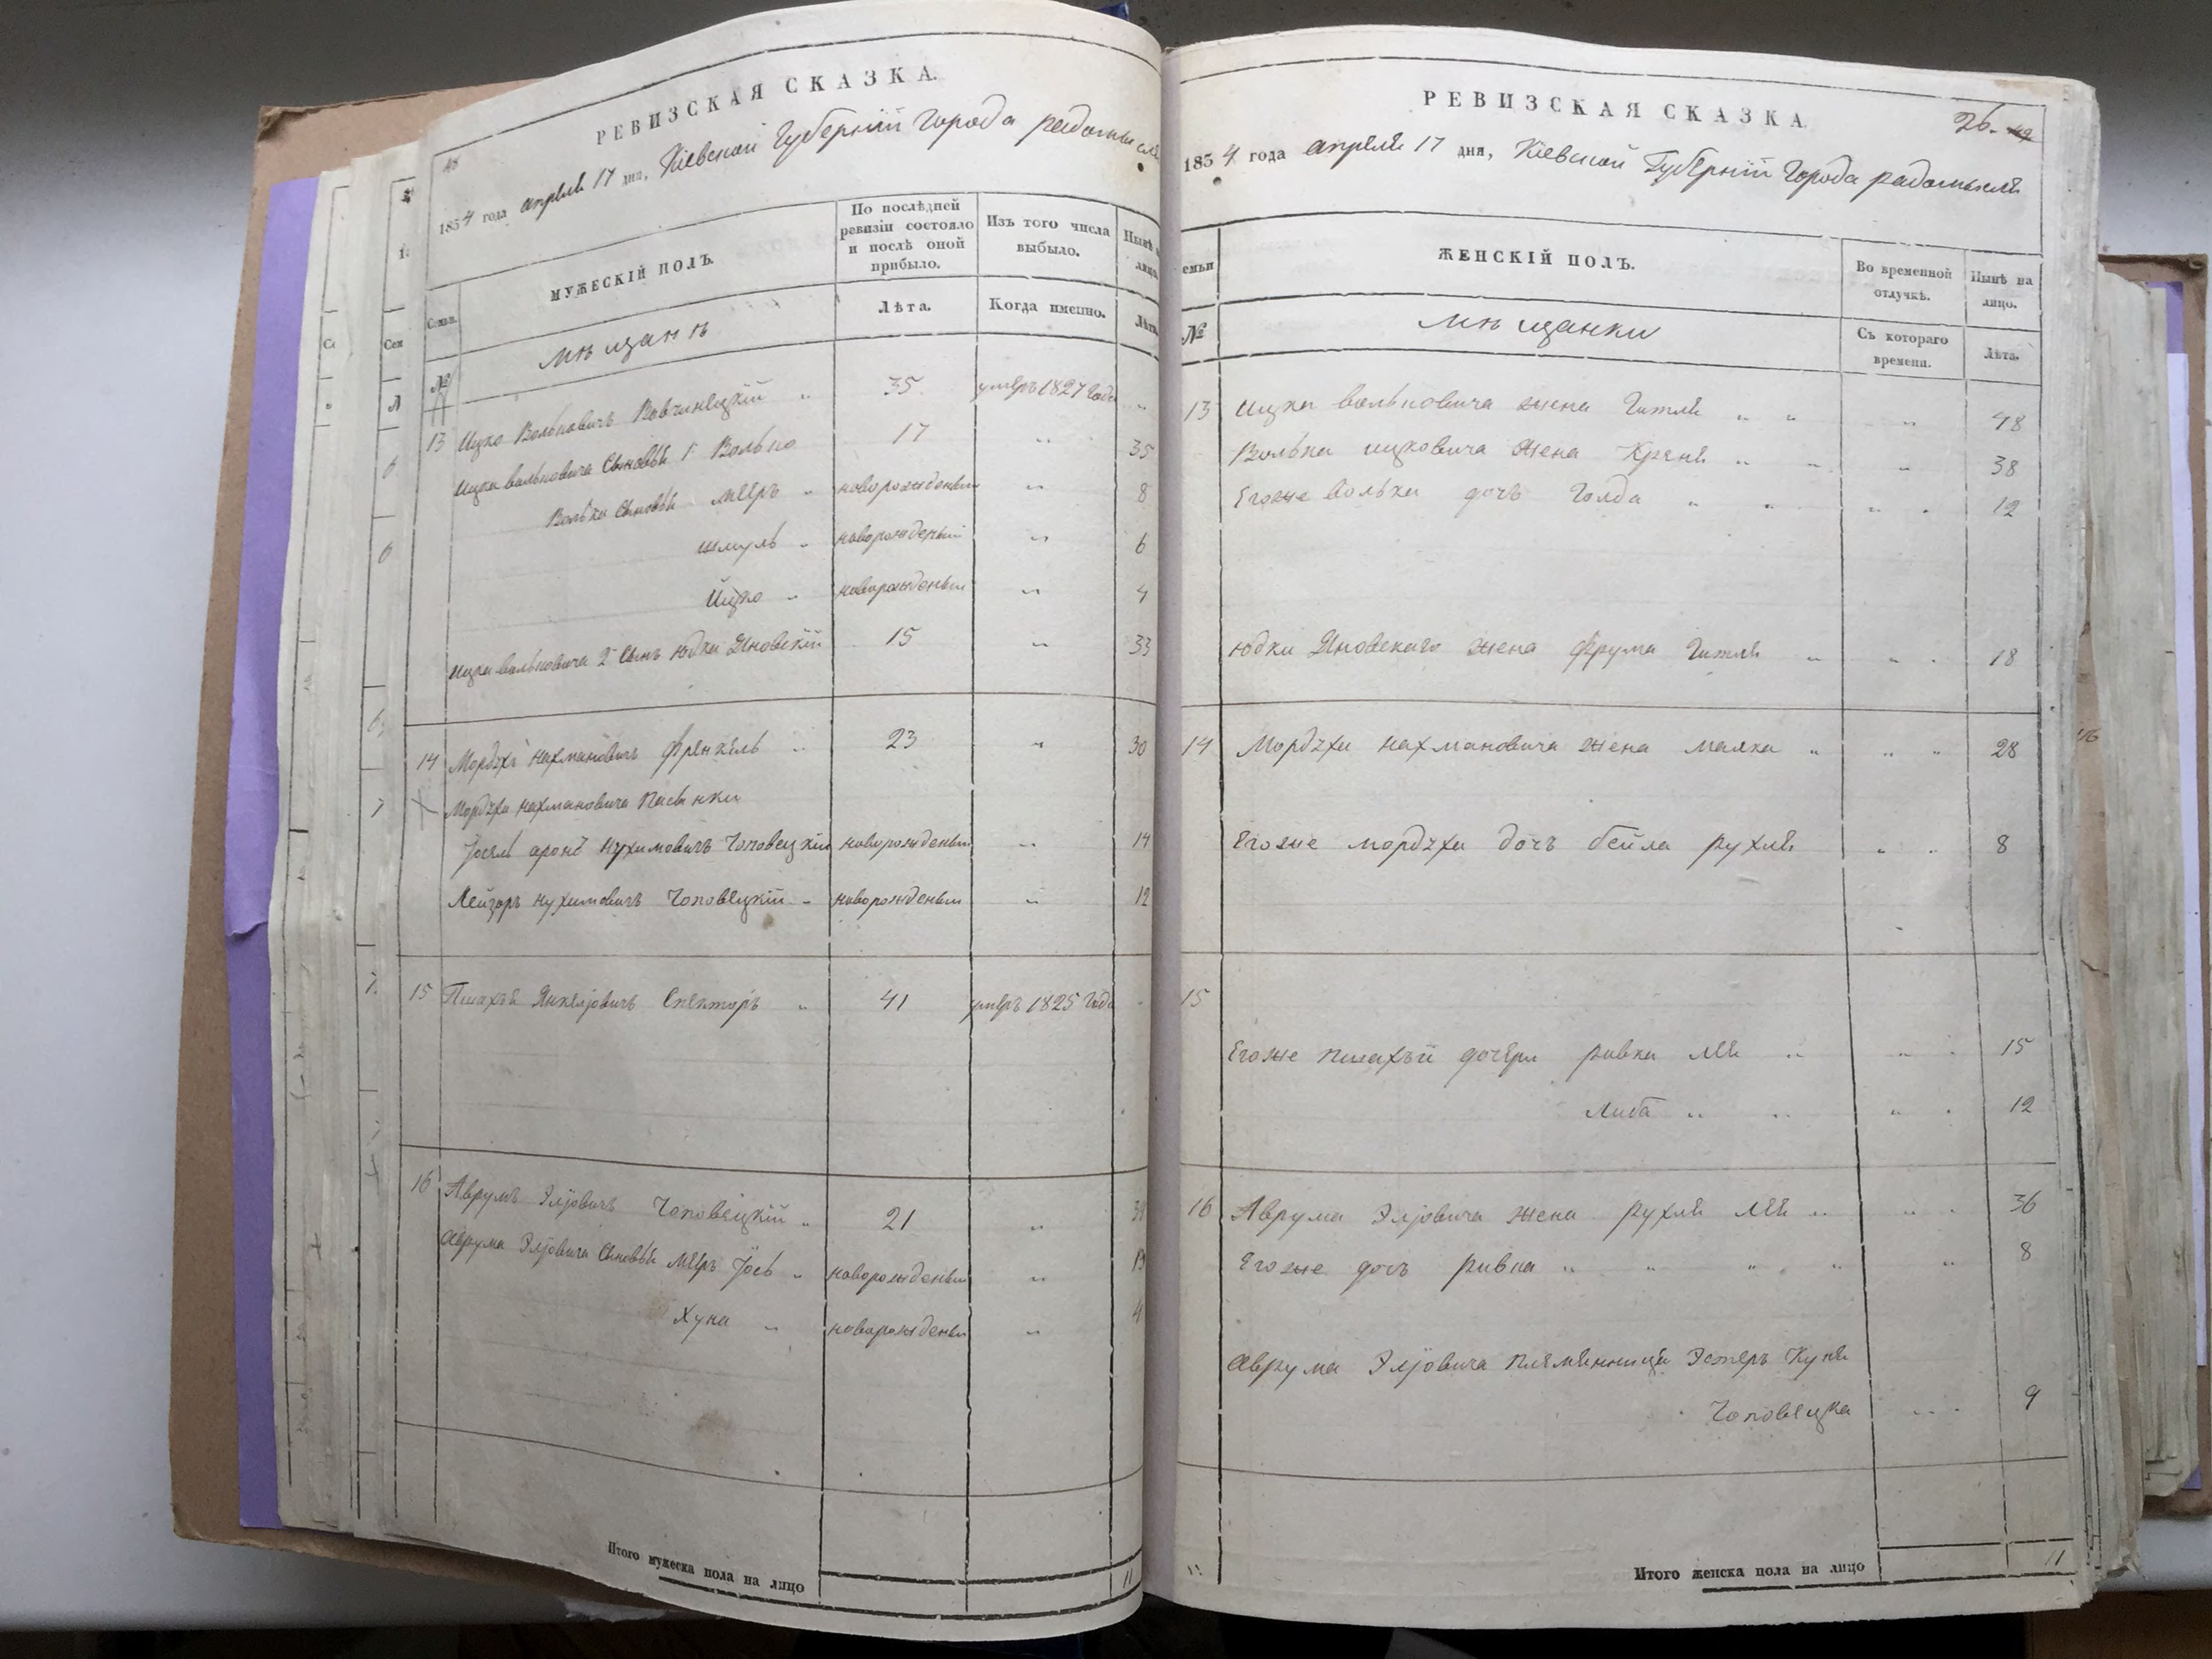 РЕВИЗСКАЯ СКАЗКА.
1854 года апреля 17 дня, Кіевской Губерніи Города радомысля
Семьи.
МУЖЕСКІЙ ПОЛЪ.
По послѣдней ревизіи состояло и послѣ оной прибыло.
Изъ того числа выбыло.
Нынѣ
лица
№
мѣщанъ
Лѣта.
Когда именно.
Лѣта
13 Ицко Вольковичъ Вовчинецкій „ 35 умеръ 1827 Года „
Ицка вольковича Сыновья 1 Волько 17 „ 35
Волька Сыновья Мееръ „ новорожденый „ 8
шмуль „ новорожденый „ 6
Ицко „ новорожденый „ 4
Ицка вольковича 2 Сынъ Юдка Яновскій 15 „ 33
14 Мордхъ Нахмановичъ Френкель „ 23 „ 30
Мордхи Нахмановича Пасынки
Іосель аронъ Нухимовичъ Чоповецкій новорожденый „ 14
Лейзоръ Нухимовичъ Чоповецкій „ новорожденый „ 12
15 Янкелювичъ Спекторъ „ 41 умеръ 1825 Года „
16 Аврумъ Элювичъ Чоповецкій „ 21 „
Аврума Элювича Сыновья Мееръ Іось „ новорожденый „
Хуна „ новорожденый „ 4
Итого мужеска пола на лицо 11
РЕВИЗСКАЯ СКАЗКА
26.
1854 года апреля 17 дня, Кіевской Губерніи Города радомысля
семьи
ЖЕНСКІЙ ПОЛЪ.
Во временной отлучкѣ.
Нынѣ на лицо.
№
мѣщанки
Съ котораго времени.
Лѣта.
13 Ицка вольковича жена Гитля „ „ „ 48
Волька ицковича жена Креня „ „ „ 38
Егоже Волька дочъ Голда „ „ „ „ 12
Юдки Яновскаго жена Фрума Гитля „ „ „ 18
14 Мордхи нахмановича жена малка „ „ „ 28
Егоже мордхи дочъ бейла рухля „ „ 8
15
Егоже дочери ривка лея „ „ „ 15
Либа „ „ „ „ 12
16 Аврума Элювича жена рухля лея „ „ „ 36
Егоже дочъ ривка „ „ „ „ „ 8
Аврума Элювича племянница Эстеръ Куня
Чоповецка „ „ 9
Итого женска пола на лицо 11